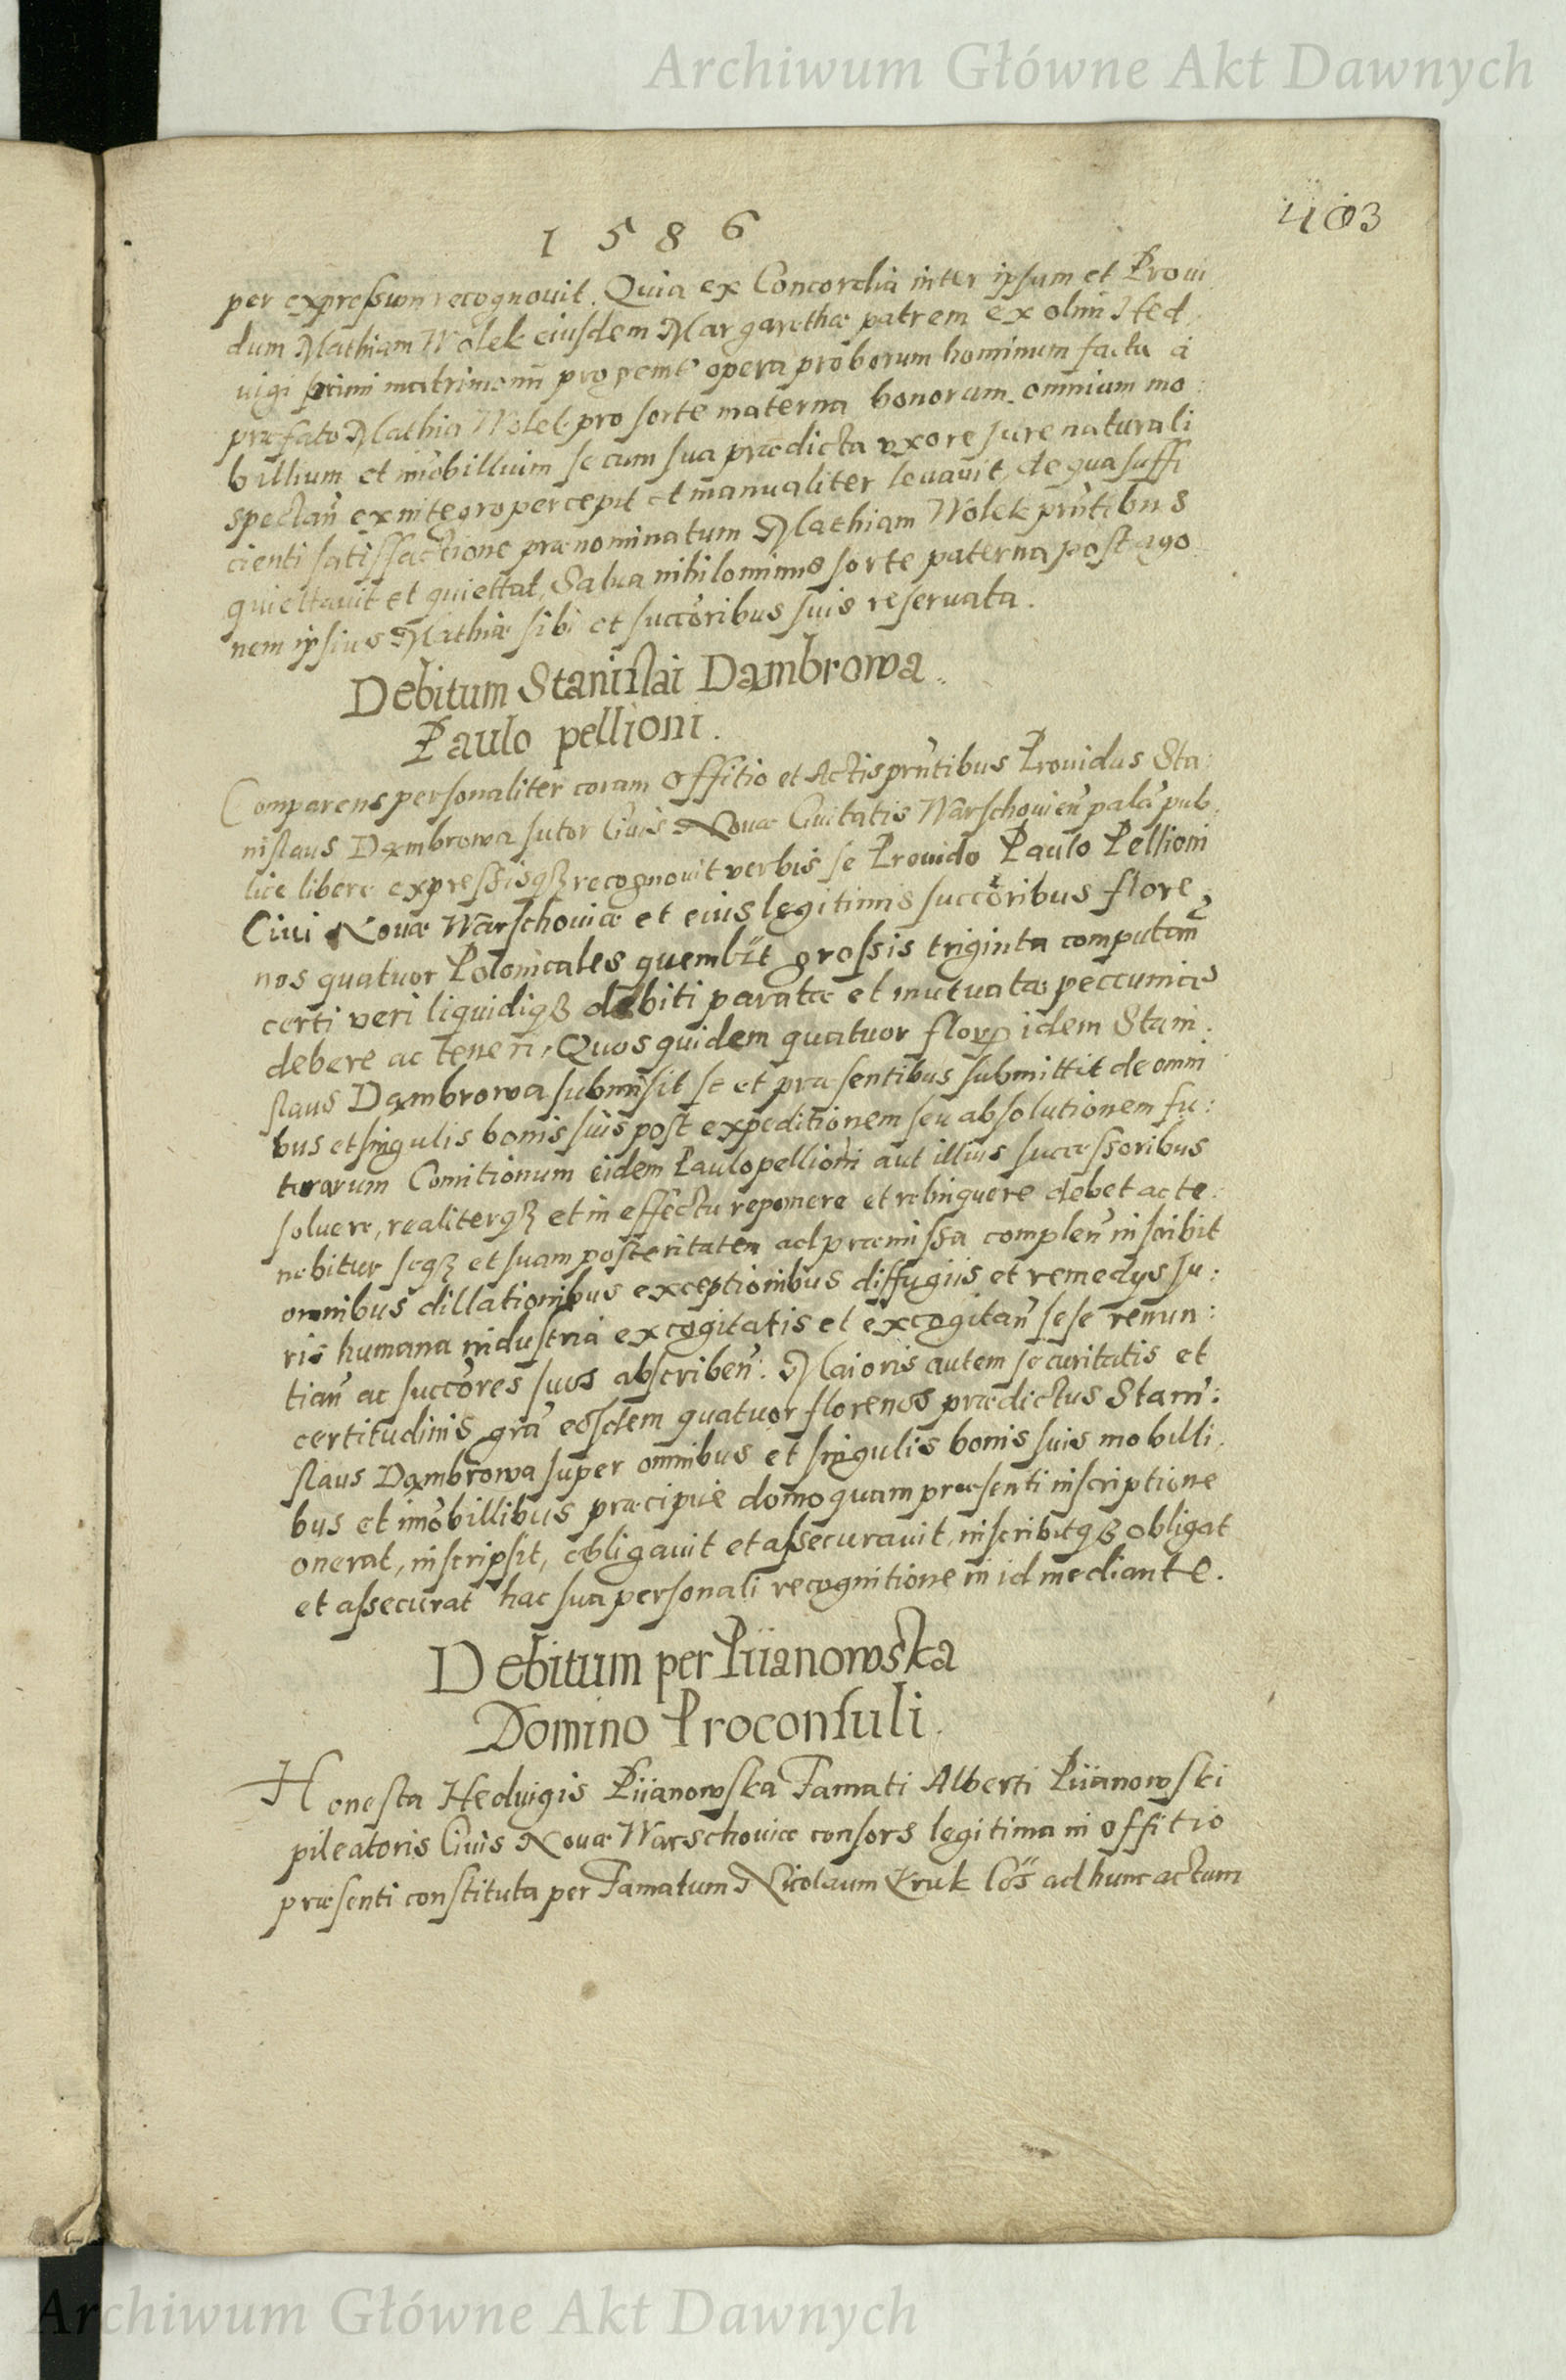 Archiwum Główne Akt Dawnych
403
1 5 8 6
per expressum recognouit. Quia ex Concordia inter ipsum et Proui
dum Mathiam Wolek eiusdem Margarethæ patrem ex olim Hed
uigi primi matrimonii opera proborum hominum facta à
præfato Mathia Wolek pro sorte materna bonorum omnium mo:
billium et imobillium se cum sua prædicta vxore jure naturali
spectan̄ ex integro percepit et manualiter leuauit, de qua suffi
cienti satisfactione prænominatum Mathiam Wolek prn̄tibus
quiettauit et quiettat, Salua nihilominus sorte paterna post ago
nem ipsius Mathiæ sibi et succōribus suis reseruata.
Debitum Stanislai Dambrowa
Paulo pellioni.
Comparens personaliter coram offitio et Actis prn̄tibus Prouidus Sta:
nislaus Dąmbrowa sutor Ciuis Nouæ Ciuitatis Warschouien̄ palā pub
lice libere expressisqȝ recognouit verbis se Prouido Paulo Pellioni
Ciui Nouæ Warschouiæ et eius legitimis succōribus flore
nos quatuor Polonicales quemlibet grossis triginta computan̄
certi veri liquidiqȝ debiti paratæ et mutuatæ peccuniæ
debere ac teneri, Quos quidem quatuor flor. idem Stani:
slaus Dąmbrowa submisit se et præsentibus submittit de omni
bus et singulis bonis suis post expeditionem seu absolutionem fu:
turarum Comitionum eidem Paulo pellioni aut illius successoribus
soluere, realiterqȝ et in effectu reponere et relinquere debet ac te:
nebitur seqȝ et suam posteritatem ad præmissa complen̄ inscribit
omnibus dillationibus exceptionibus diffugiis et remedys Ju:
ris humana industria excogitatis et excogitan̄ sese renun:
tian̄ ac succōres suos abscriben̄: Maioris autem securitatis et
certitudinis grā eosdem quatuor florenos prædictus Stani:
slaus Dąmbrowa super omnibus et singulis bonis suis mobilli
bus et imōbillibus præcipue domo quam præsenti inscriptione
onerat, inscripsit, obligauit et assecurauit, inscribitqȝ obligat
et assecurat hac sua personali recognitione in id mediante.
Debitum per Piianowska
Domino Proconsuli.
Honesta Heduigis Piianowska Famati Alberti Piianowski
pileatoris Ciuis Nouæ Warschouiæ consors legitima in offitio
præsenti constituta per Famatum Nicolaum Kruk ad hunc actum
Archiwum Główne Akt Dawnych